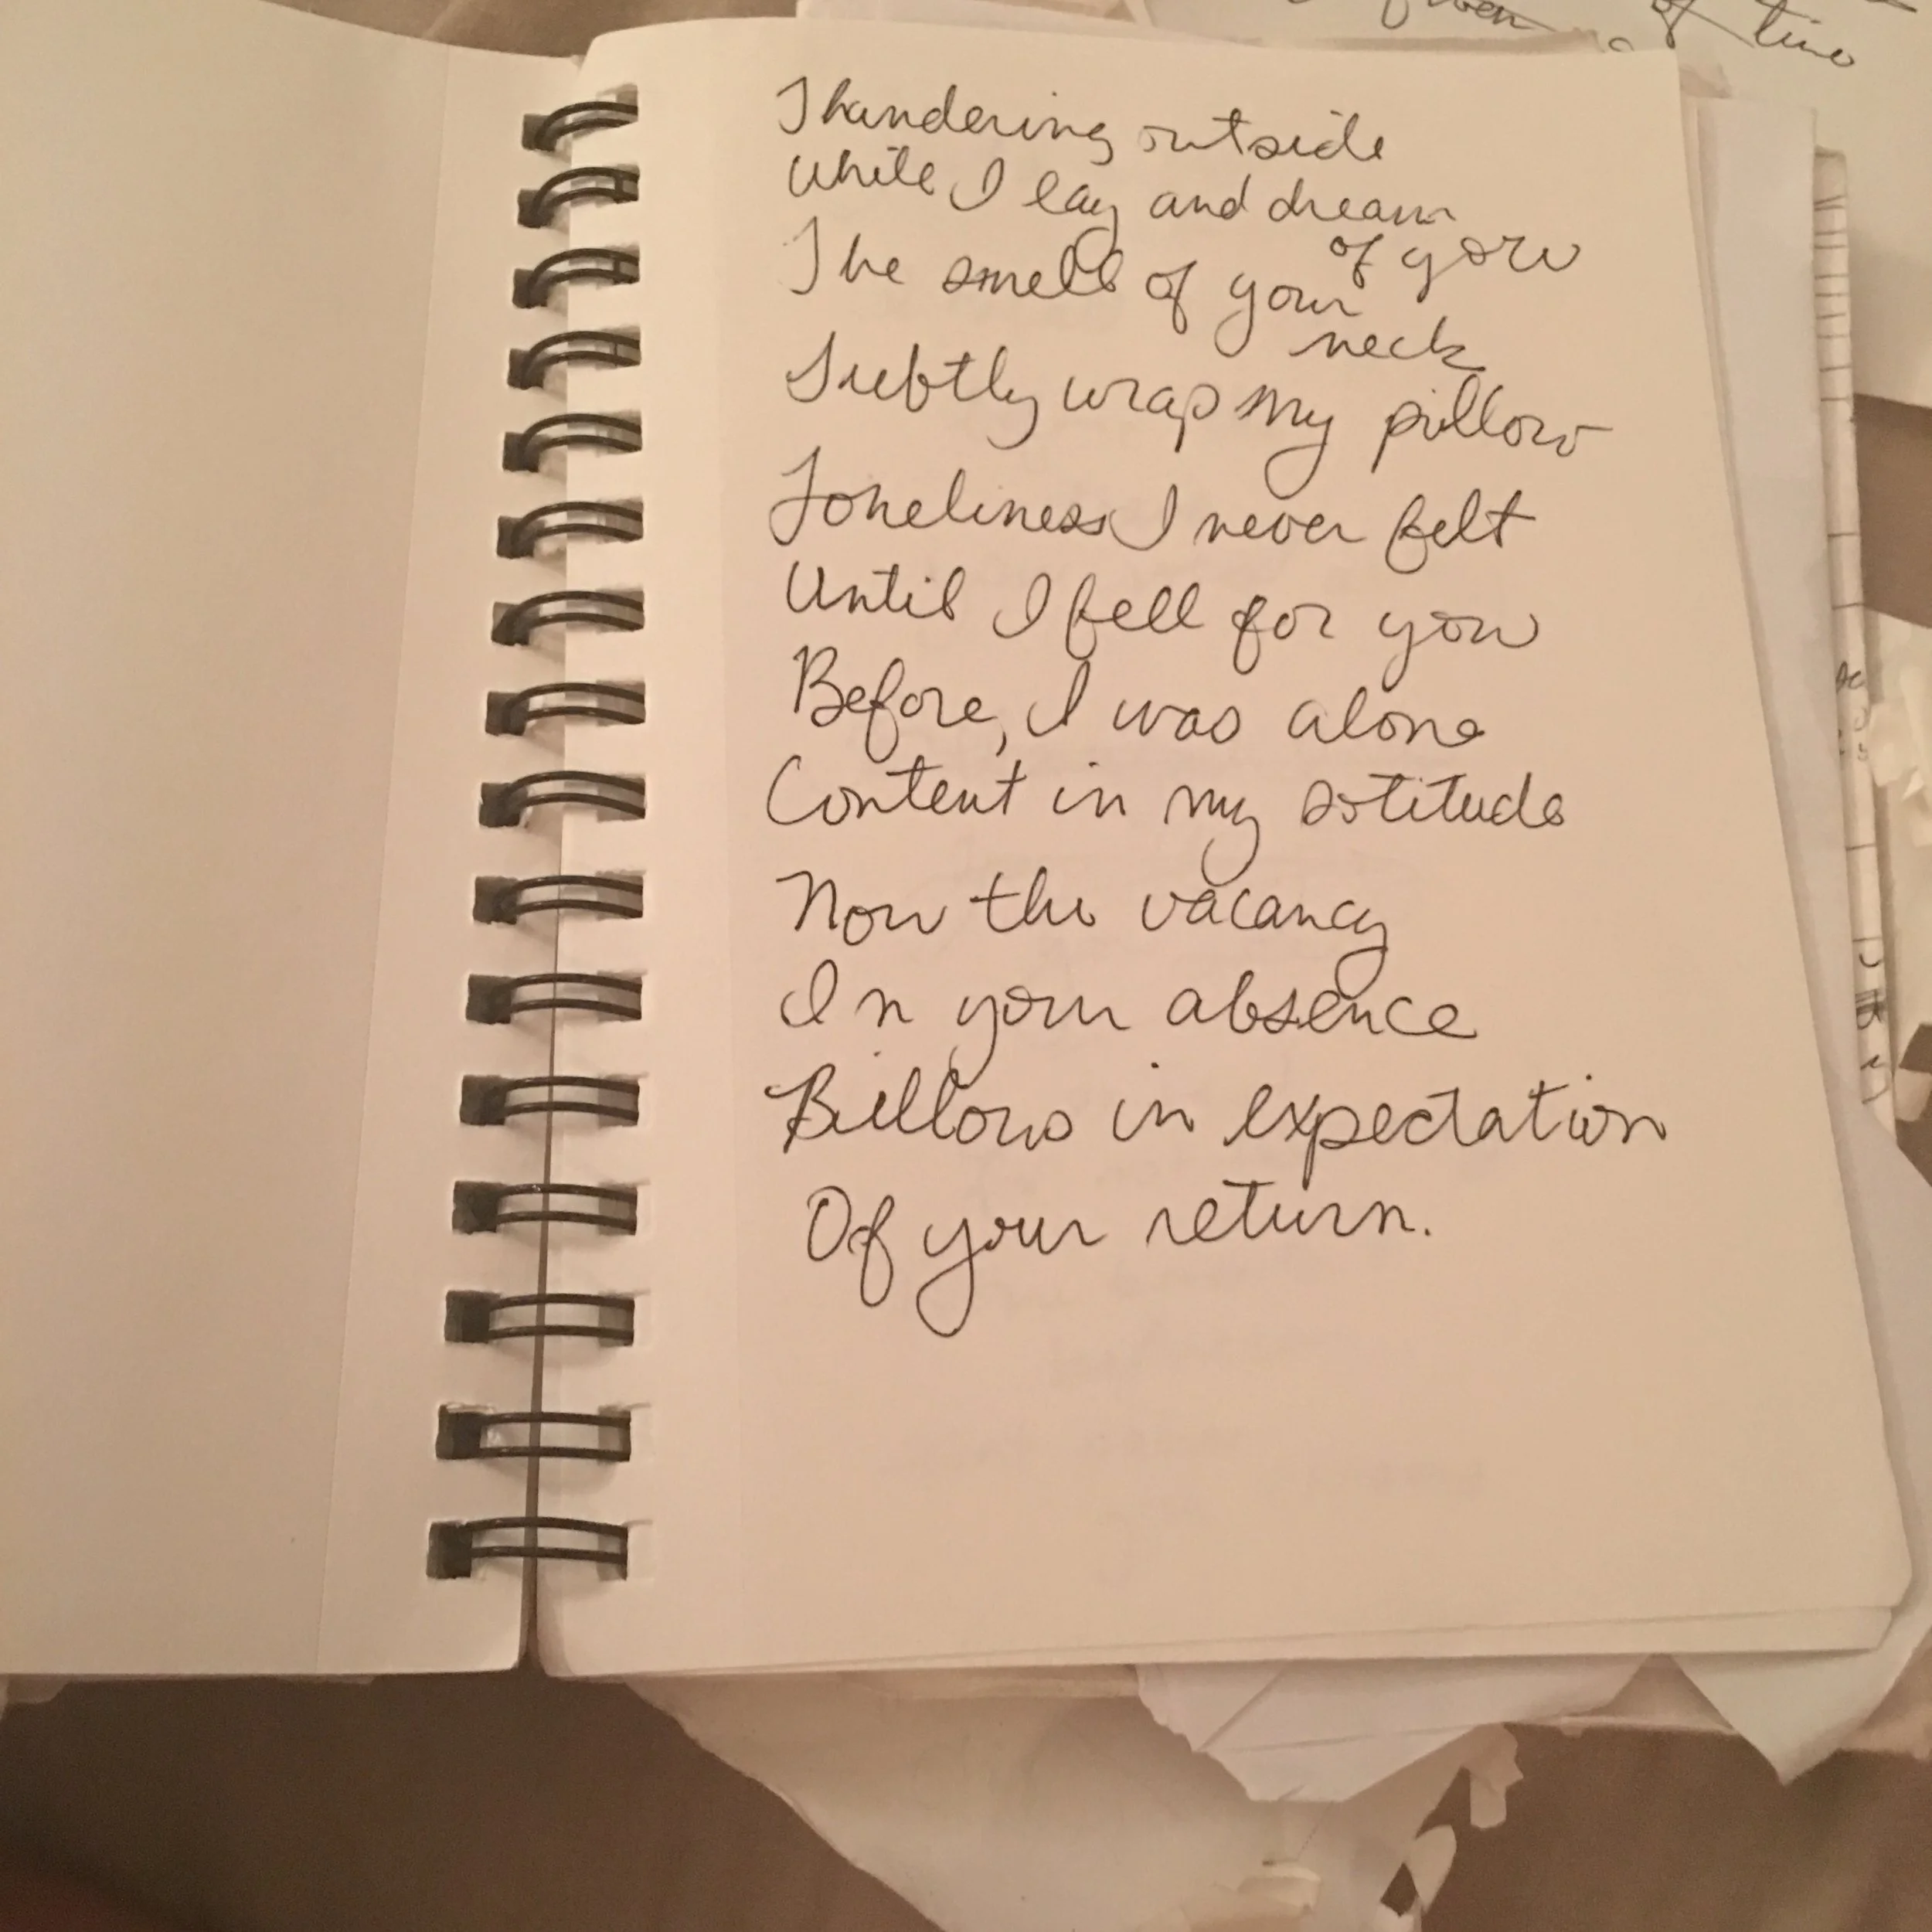 of time
Thundering outside
While I lay and dream
of you
The smell of your
neck
Subtly wrap my pillow
Loneliness I never felt
Until I fell for you
Before, I was alone
Content in my solitude
Now the vacancy
In your absence
Billows in expectation
Of your return.